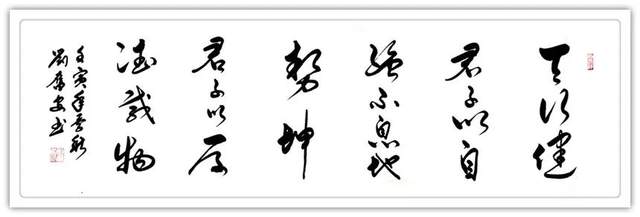 天行健
君子以自
强不息地
勢坤
君子以厚
德載物
壬寅年秋
劉书